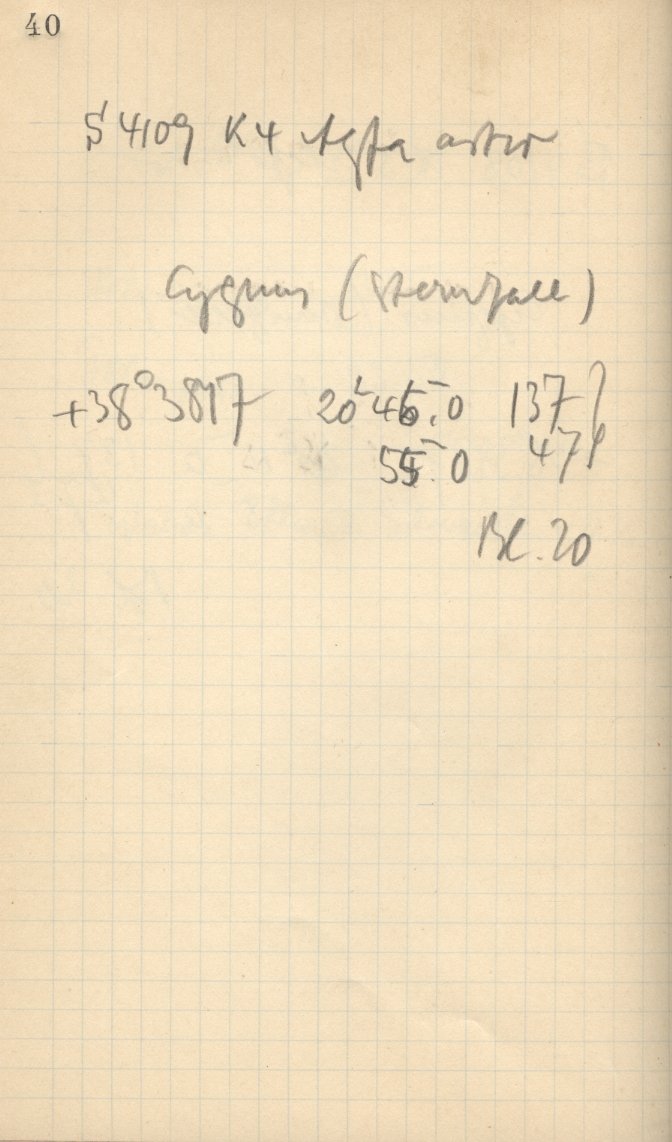 40
S 4109 K4 Agfa astro
Cygnus (Sternfall)
+38°3817 20ʰ 46.0 137
55.0 47
Bl. 20